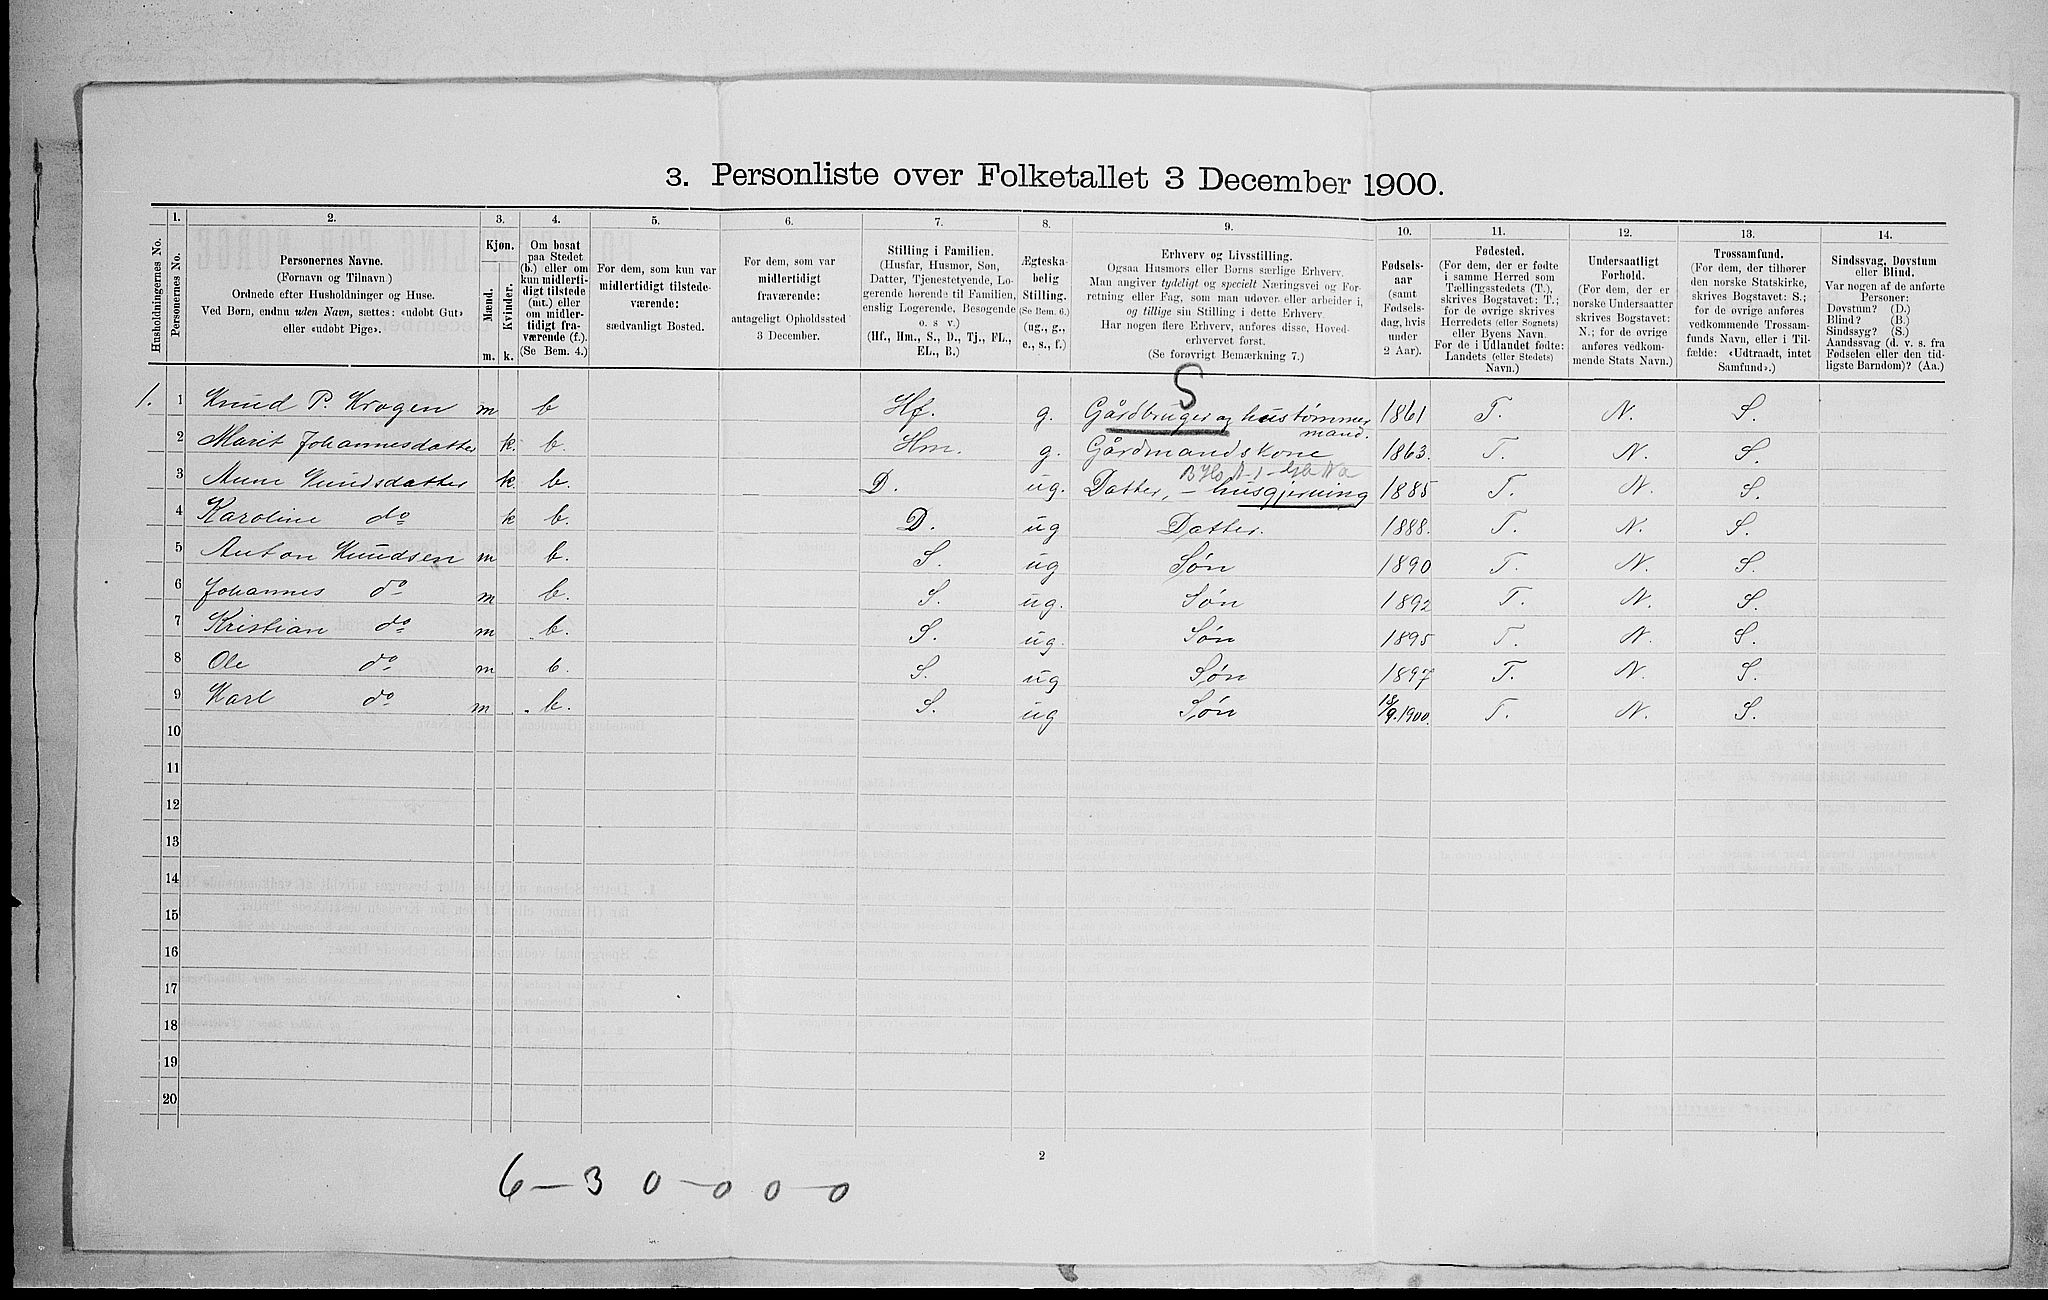 3. Personliste over Folketallet 3 December 1900.
Husholdningernes No.
1.
Personernes No.
2.
Personernes Navne.
(Fornavn og Tilnavn)
Ordnede efter Husholdninger og Huse.
Ved Børn, endnu uden Navn, sættes: «udobt Gut»
eller «udobt Pige».
3.
Kjøn.
Mænd.
Kvinder.
m. k.
4.
Om bosat
paa Stedet
(b.) eller om
kun midlerti-
digt tilstede
(mt.) eller
om midler-
tidigt fra-
værende (f.).
(Se Bem. 4.)
5.
For dem, som kun var
midlertidigt tilstede-
værende:
sædvanligt Bosted.
6.
For dem, som var
midlertidigt
fraværende:
antageligt Opholdssted
3 December.
7.
Stilling i Familien.
(Husfar, Husmor, Søn,
Datter, Tjenestetyende, Lo-
gerende hørende til Familien,
enslig Logerende, Besøgende
o. s v.)
(Hf., Hm., S., D., Tj., FL.,
EL., B.)
8.
Ægteska-
belig
Stilling.
(Se Bem. 6.)
(ug., g.,
e., s., f.)
9.
Erhverv og Livsstilling.
Ogsaa Husmors eller Børns særlige Erhverv.
Man angiver tydeligt og specielt Næringsvei og For-
retning eller Fag, som man udøver eller arbeider i,
og tillige sin Stilling i dette Erhverv.
Har nogen flere Erhverv, anføres disse, Hoved-
erhvervet først.
(Se forøvrigt Bemærkning 7.)
10.
Fødsels-
aar
(samt
Fødsels-
dag, hvis
under
2 Aar).
11.
Fødested.
(For dem, der er fødte
i samme Herred som
Tællingsstedets (T.),
skrives Bogstavet: T.;
for de øvrige skrives
Herredets (eller Sognets)
eller Byens Navn.
For de i Udlandet fødte:
Landets (eller Stedets)
Navn.)
12.
Undersaatligt
Forhold.
(For dem, der er
norske Undersaatter
skrives Bogstavet:
N.; for de øvrige
anføres vedkom-
mende Stats Navn.)
13.
Trossamfund.
(For dem, der tilhører
den norske Statskirke,
skrives Bogstavet: S.;
for de øvrige anføres
vedkommende Trossam-
funds Navn, eller i Til-
fælde: «Udtraadt, intet
Samfund».)
14.
Sindssvag, Døvstum
eller Blind.
Var nogen af de anførte
Personer:
Døvstum? (D.)
Blind? (B.)
Sindssyg? (S.)
Aandssvag (d. v. s. fra
Fødselen eller den tid-
ligste Barndom)? (Aa.)
S
1. 1 Knud P. Krogen m b Hf. g. Gårdbruger og hustømmer 1861 T. N. S.
mand.
2 Marit Johannesdatter k. b. Hm. g. Gårdmandskone 1863. T. N. S.
3 Anne Knudsdatter k. b. D. ug. Datter, – husgjerning 1885 T. N. S.
4 Karoline do k b. D. ug Datter. 1888. T. N. S.
5 Anton Knudsen m b. S. ug Søn 1890 T. N. S.
6 Johannes do m b. S. ug. Søn 1892 T. N. S.
7 Kristian do m b. S. ug. Søn 1895 T. N. S.
8 Ole do m b. S. ug Søn 1897 T. N. S.
9 Karl do m b. S. ug Søn 18/9.1900. T. N. S.
10
11
12
13
14
15
16
17
18
19
20
2
6 – 3 0 – 0 0 – 0